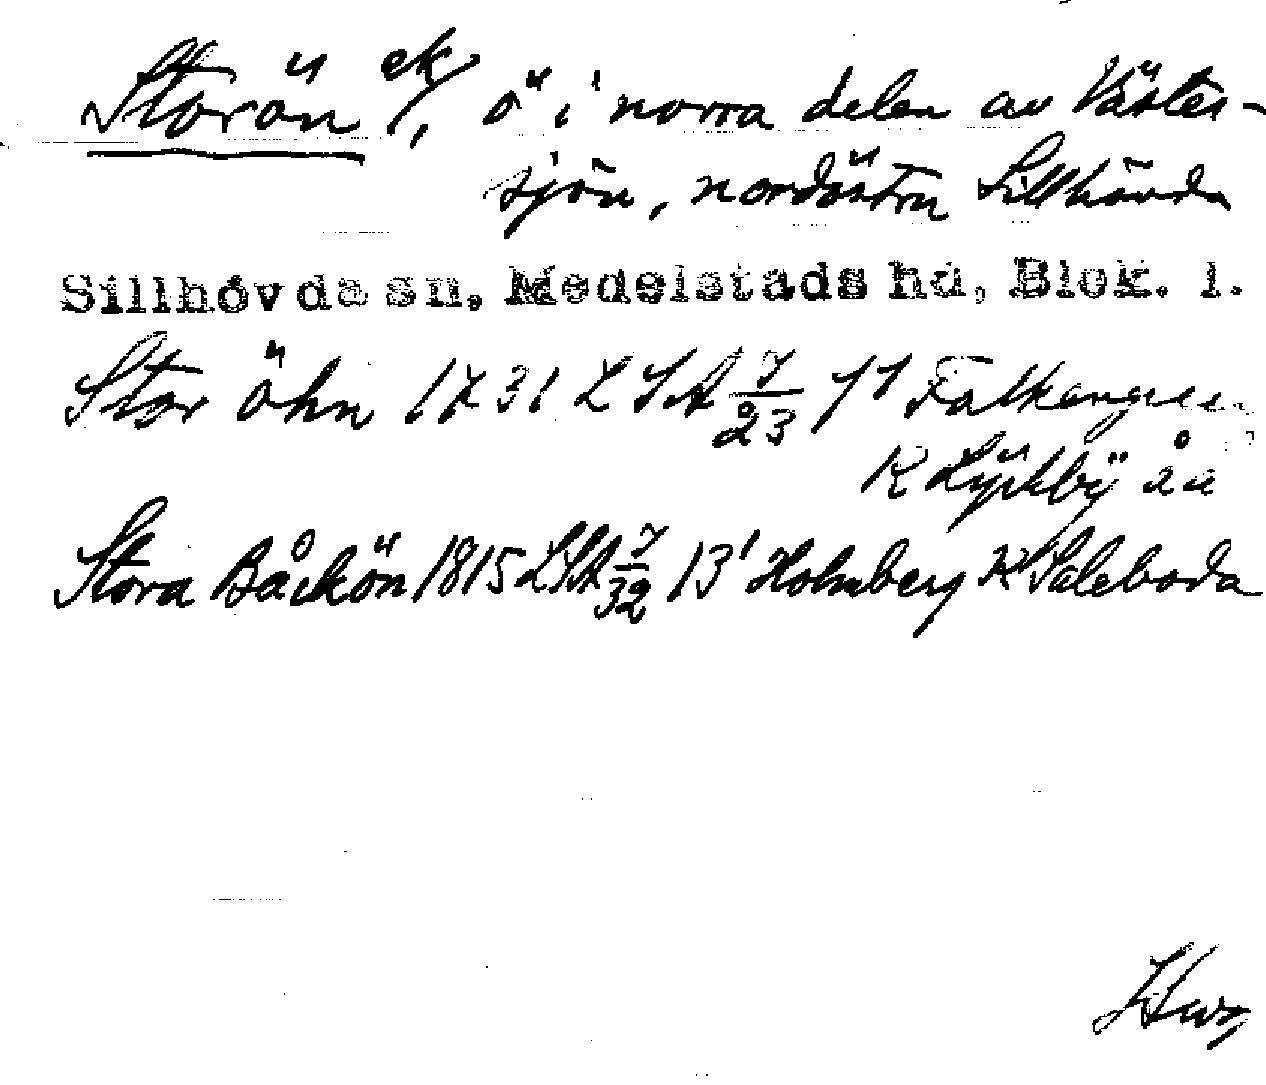 Storön ek/, ö i norra delen av Väster-
sjön, nordöstra Sillhövda
Sillhövda sn, Medelstads hd, Blek. l.
Stor öhn 1731 LSA 7/23 1¹ Falkengreen
K Lyckby åa
Stora Båckön 1815 LSA 7/32 13¹ Holmberg K Saleboda